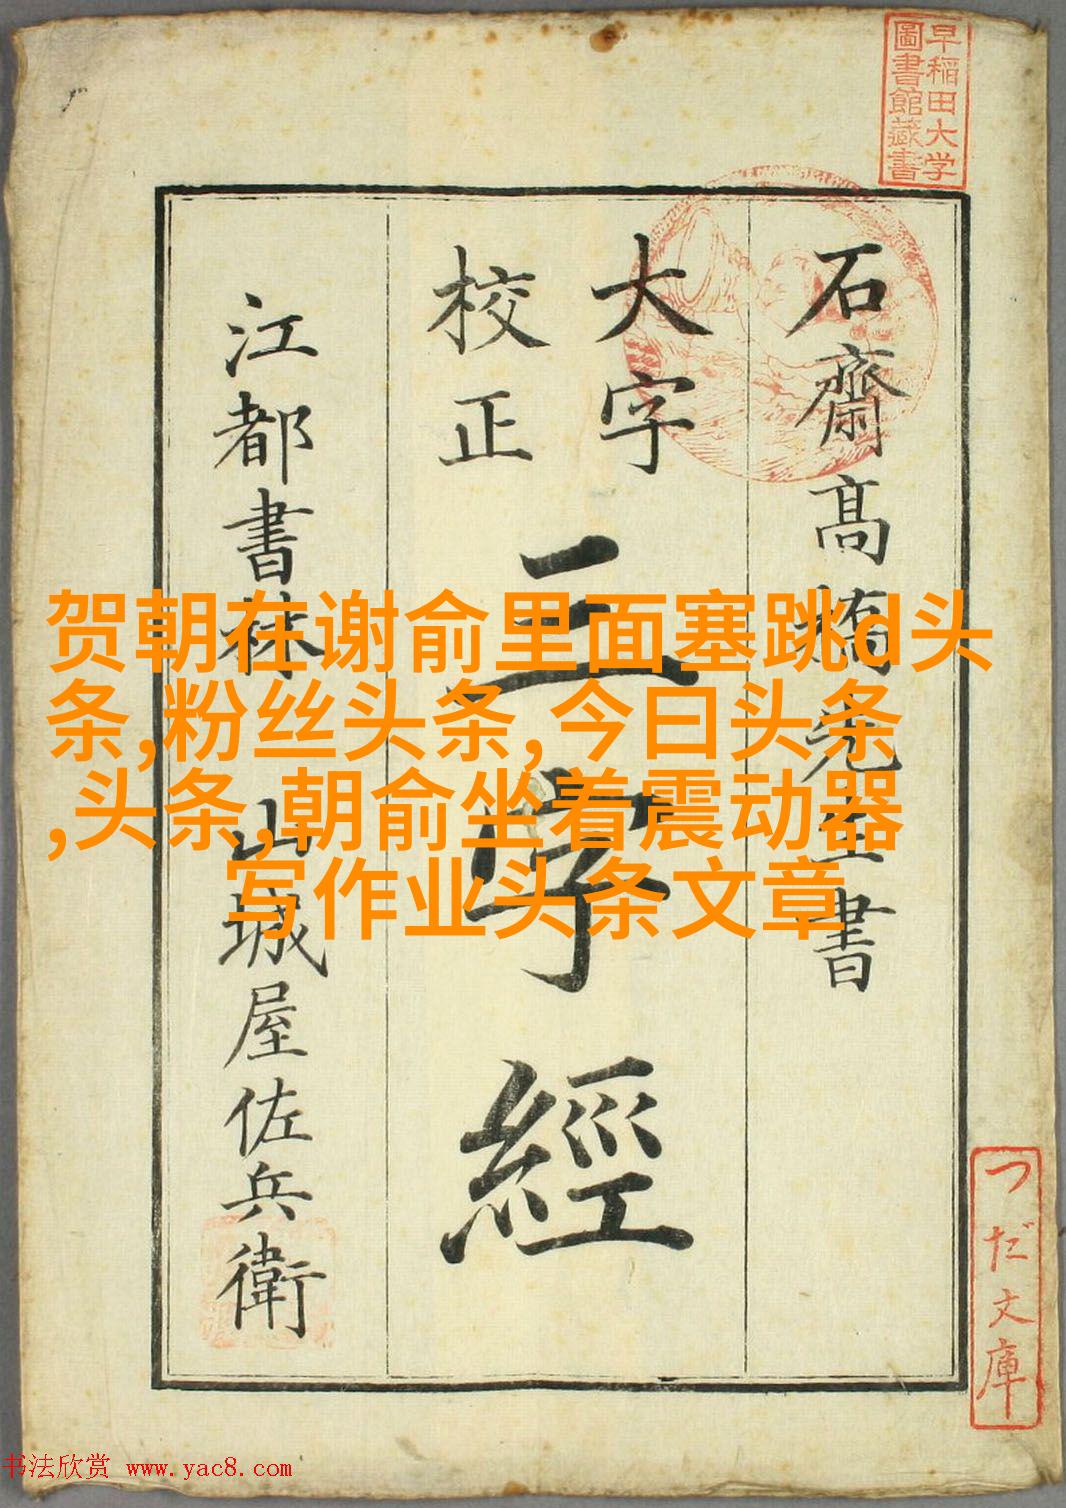 早稲田大学
圖書館藏書
石齋高橋先生書
大字
校正
三字經
江都書林 山城屋佐兵衛
贺朝在谢俞里面塞跳d头
条,粉丝头条,今曰头条
,头条,朝俞坐着震动器
写作业头条文章
つだ文庫
书法欣赏 www.yac8.com